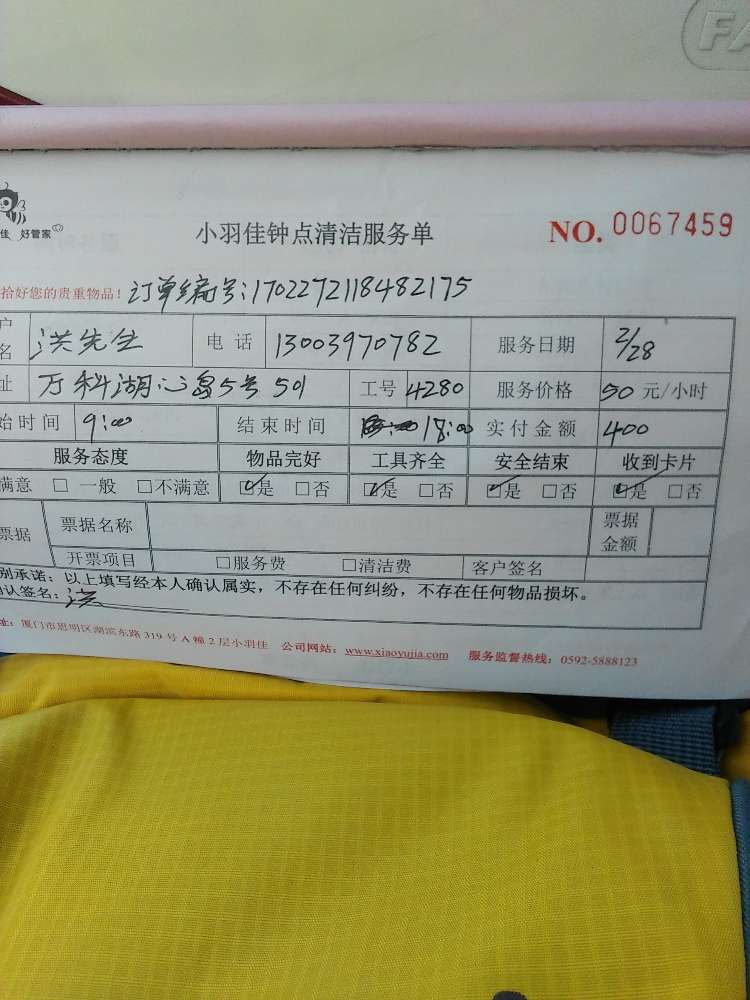 FA
佳 好管家
小羽佳钟点清洁服务单
NO. 0067459
拾好您的贵重物品！订单编号:1702272118482175
户名 洪先生 电话 13003970782 服务日期 2/28
址 万科湖心岛5号501 工号 4280 服务价格 50 元/小时
始时间 9:00 结束时间 18:00 实付金额 400
服务态度 物品完好 工具齐全 安全结束 收到卡片
满意 □ 一般 □不满意 ☑是 □否 ☑是 □否 ☑是 □否 ☑是 □否
票据 票据名称 票据金额
开票项目 □服务费 □清洁费 客户签名
别承诺：以上填写经本人确认属实，不存在任何纠纷，不存在任何物品损坏。
认签名：洪
址：厦门市思明区湖滨东路 319 号 A 幢 2 层小羽佳 公司网站：www.xiaoyujia.com 服务监督热线：0592-5888123